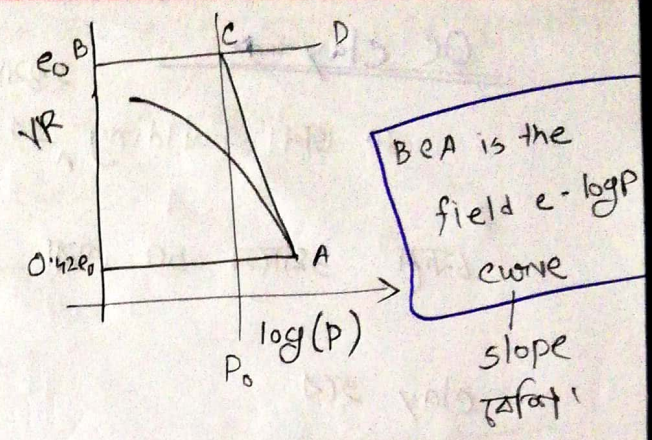 C D
e₀ B
VR
0.42e₀
A
log(p)
P₀
BCA is the
field e-logP
curve
slope
বেশি।